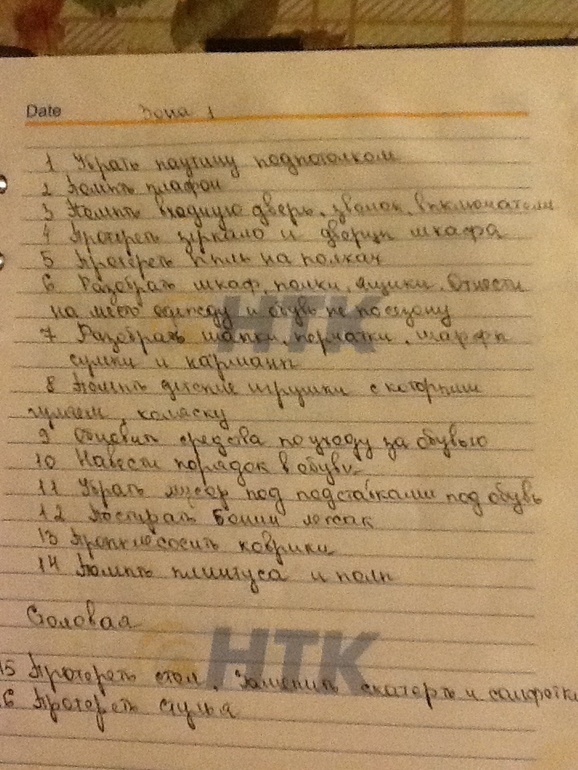 Date Зона 1
1 Убрать паутину подпотолком
2 Помыть плафон
3 Помыть входную дверь, звонок, включатели
4 Протереть зеркало и дверцы шкафа
5 Протереть пыль на полках
6 Разобрать шкаф, полки, ящики. Отнести
на место одежду и обувь не по сезону
НТК
7 Разобрать шапки, перчатки, шарфы
сумки и карманы
8 Помыть детские игрушки с которыми
гуляем, коляску
9 Обновить средства по уходу за обувью
10 Навести порядок в обуви
11 Убрать мусор под подставками под обувь
12 Постирать
13 Пропылесосить коврики
14 Помыть плинтуса и полы
Столовая
НТК
15 Протереть стол. Заменить скатерть и салфетки
16 Протереть стулья